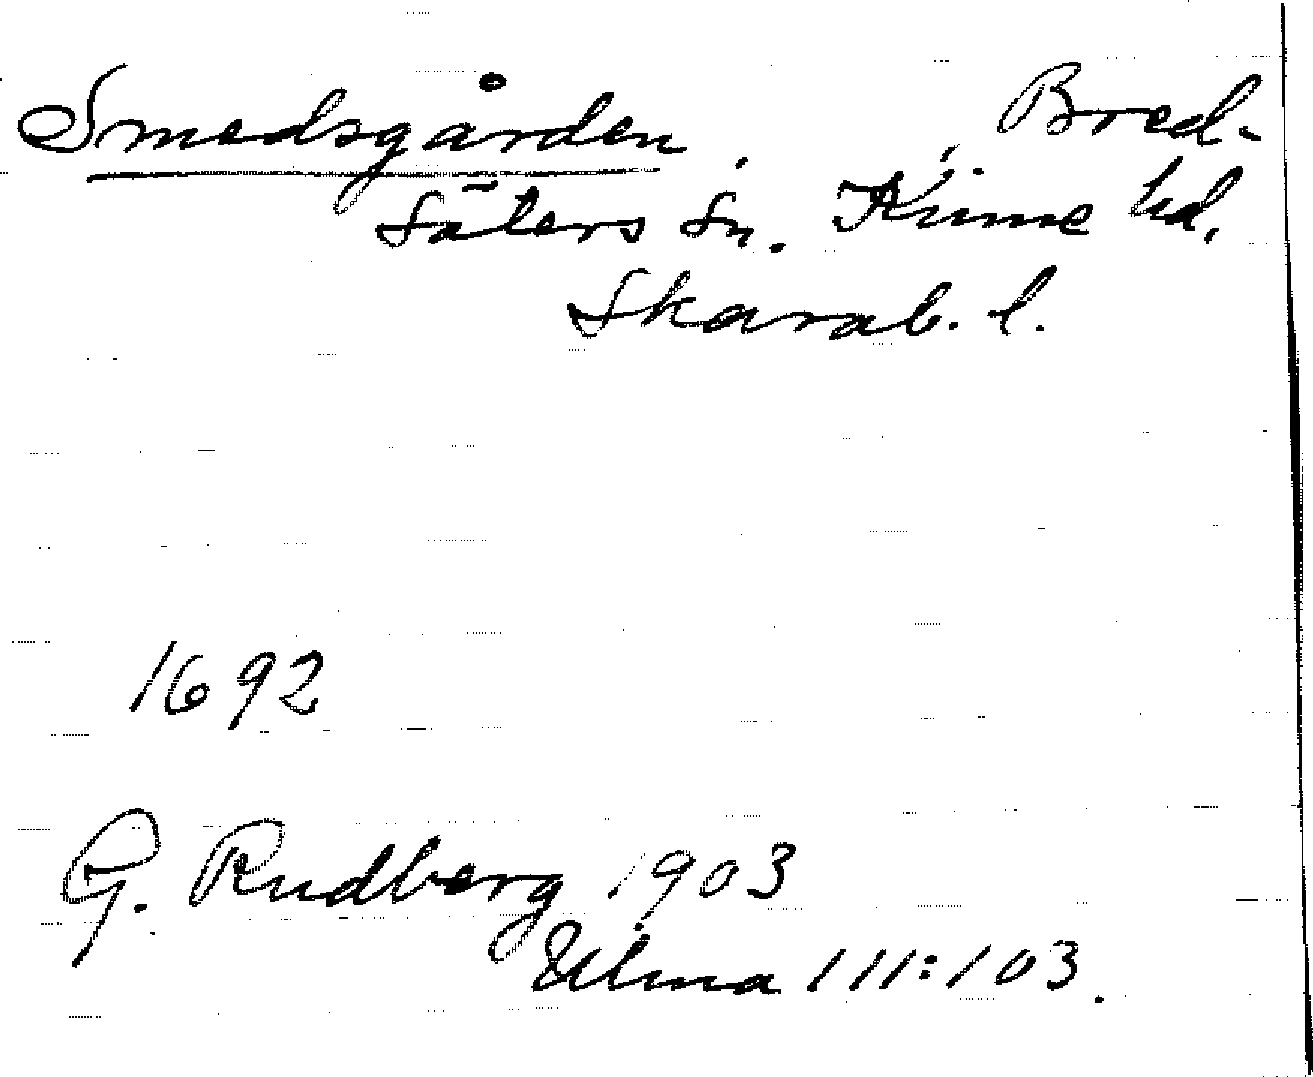 Smedsgården, Bred-
säters sn. Kinne hd,
Skarab. l.
1692
G. Rudberg 1903
Ulma 111:103.